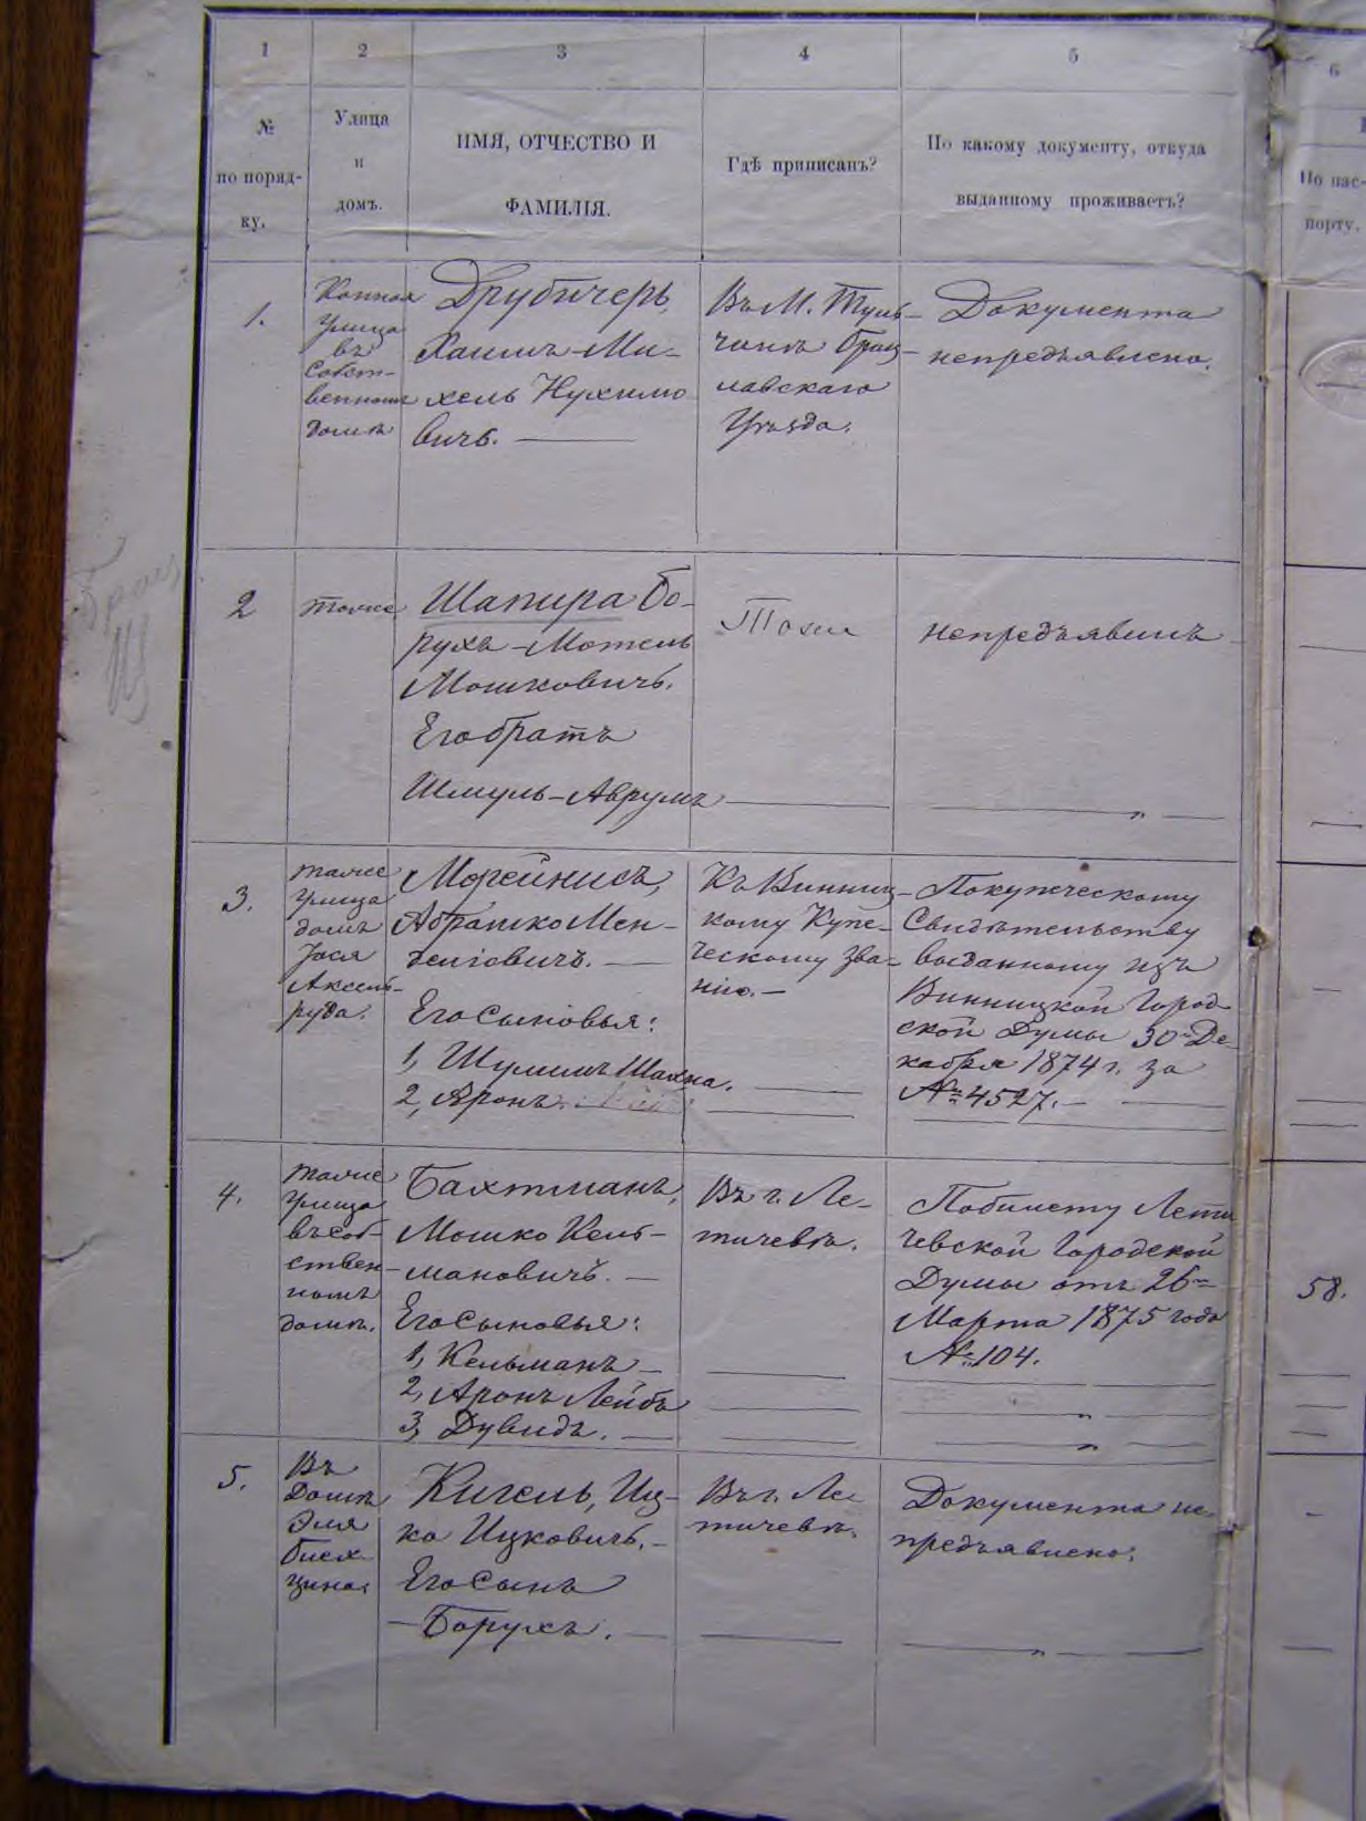 1
2
3
4
5
6
№
по поряд-
ку.
Улица
и
домъ.
ИМЯ, ОТЧЕСТВО И
ФАМИЛІЯ.
Гдѣ приписанъ?
По какому документу, откуда
выданному проживаетъ?
По пас-
порту.
1.
Конная
улица
въ
собст-
венномъ
домѣ
Друбичеръ,
Хаимъ-Ми-
хель Нухимо
вичъ.
Въ М. Туль-
чинѣ Брац-
лавскаго
Уѣзда.
Документа
непредъявлено.
2
тоже
Шапира Бо-
рухъ-Мотель
Мошковичъ.
Его братъ
Шмуль-Аврумъ
Тоже
непредъявилъ
3.
тоже
улица
домъ
Йося
Аксель-
руда.
Морейнисъ,
Абрашко Мен-
делиовичъ.
Его сыновья:
1, Шулимъ Шахна.
2, Аронъ.
Къ Винниц-
кому Купе-
ческому зва-
нію.
По купеческому
Свидѣтельству
выданному изъ
Винницкой Город-
ской Думы 30го Де-
кабря 1874 г. за
№ 4527.
4.
тоже
улица
въ соб-
ствен-
номъ
домѣ.
Бахтманъ,
Мошко Кель-
мановичъ.
Его сыновья:
1, Кельманъ
2, Аронъ Лейбъ
3, Дувидъ.
Въ г. Ле-
тичевѣ.
По билету Лети
чевской Городской
Думы отъ 26го
Марта 1875 года
№ 104.
58.
5.
Въ
домѣ
Эля
Кигель, Иц-
ко Ицковичъ.
Его сынъ
Борухъ.
Въ г. Ле-
тичевѣ.
Документа не-
предъявлено.